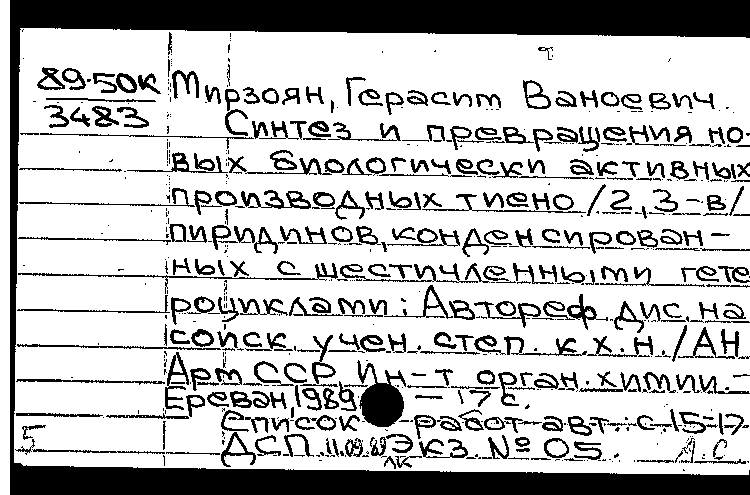 89-50к
3483
Мирзоян, Герасим Ваноевич.
Синтез и превращения но-
вых биологически активных
производных тиено/2,3-в/
пиридинов, конденсирован-
ных с шестичленными гете
роциклами: Автореф. дис. на
соиск. учен. степ. к.х.н./АН
Арм ССР, Ин-т орган. химии. -
Ереван, 1989 - 17 с.
Список работ авт.: с.15-17
ДСП. 11.09.89 Экз. № 05.
5